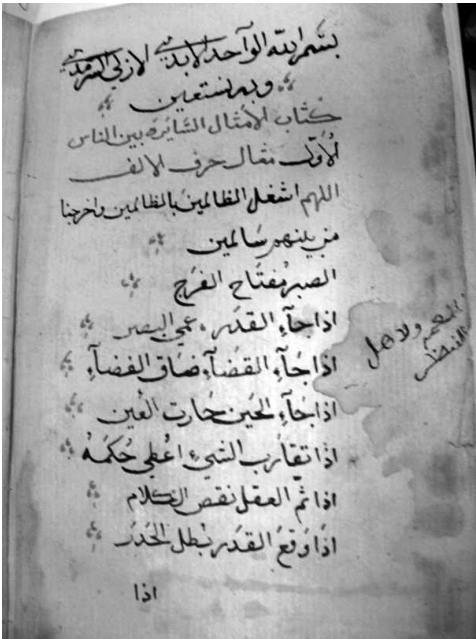 بسم الله الواحد الابدي الازلي السرمدي
وبه نستعين
كتاب الأمثال السائره بين الناس
الأول مثال حرف الالف
اللهم اشغل الظالمين بالظالمين واخرجنا
من بينهم سالمين
الصبر مفتاح الفرج
اذا جآء القدر عمي البصر
اذا جآء القضآء ضاق الفضآء
اذا جآء الحين حارت العين
اذا تقارب الشيء اعطي حكمه
اذا تم العقل نقص الكلام
اذا وقع القدر بطل الحذر
اذا
ولاهل